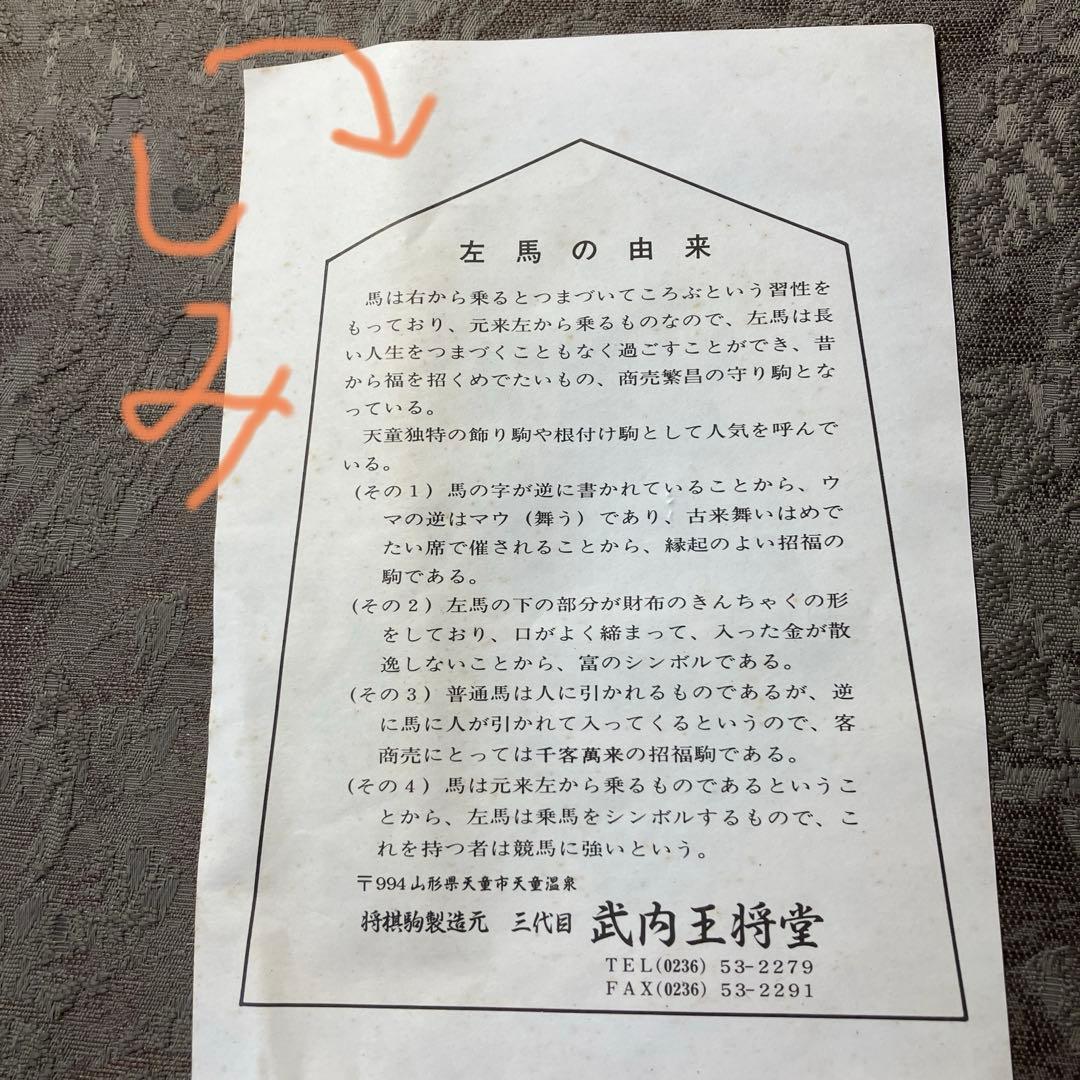 しみ
左馬の由来
馬は右から乗るとつまづいてころぶという習性を
もっており、元来左から乗るものなので、左馬は長
い人生をつまづくこともなく過ごすことができ、昔
から福を招くめでたいもの、商売繁昌の守り駒とな
っている。
天童独特の飾り駒や根付け駒として人気を呼んで
いる。
(その1) 馬の字が逆に書かれていることから、ウ
マの逆はマウ (舞う) であり、古来舞いはめで
たい席で催されることから、縁起のよい招福の
駒である。
(その2) 左馬の下の部分が財布のきんちゃくの形
をしており、口がよく締まって、入った金が散
逸しないことから、富のシンボルである。
(その3) 普通馬は人に引かれるものであるが、逆
に馬に人が引かれて入ってくるというので、客
商売にとっては千客萬来の招福駒である。
(その4) 馬は元来左から乗るものであるというこ
とから、左馬は乗馬をシンボルするもので、こ
れを持つ者は競馬に強いという。
〒994 山形県天童市天童温泉
将棋駒製造元 三代目 武内王将堂
TEL(0236) 53-2279
FAX(0236) 53-2291